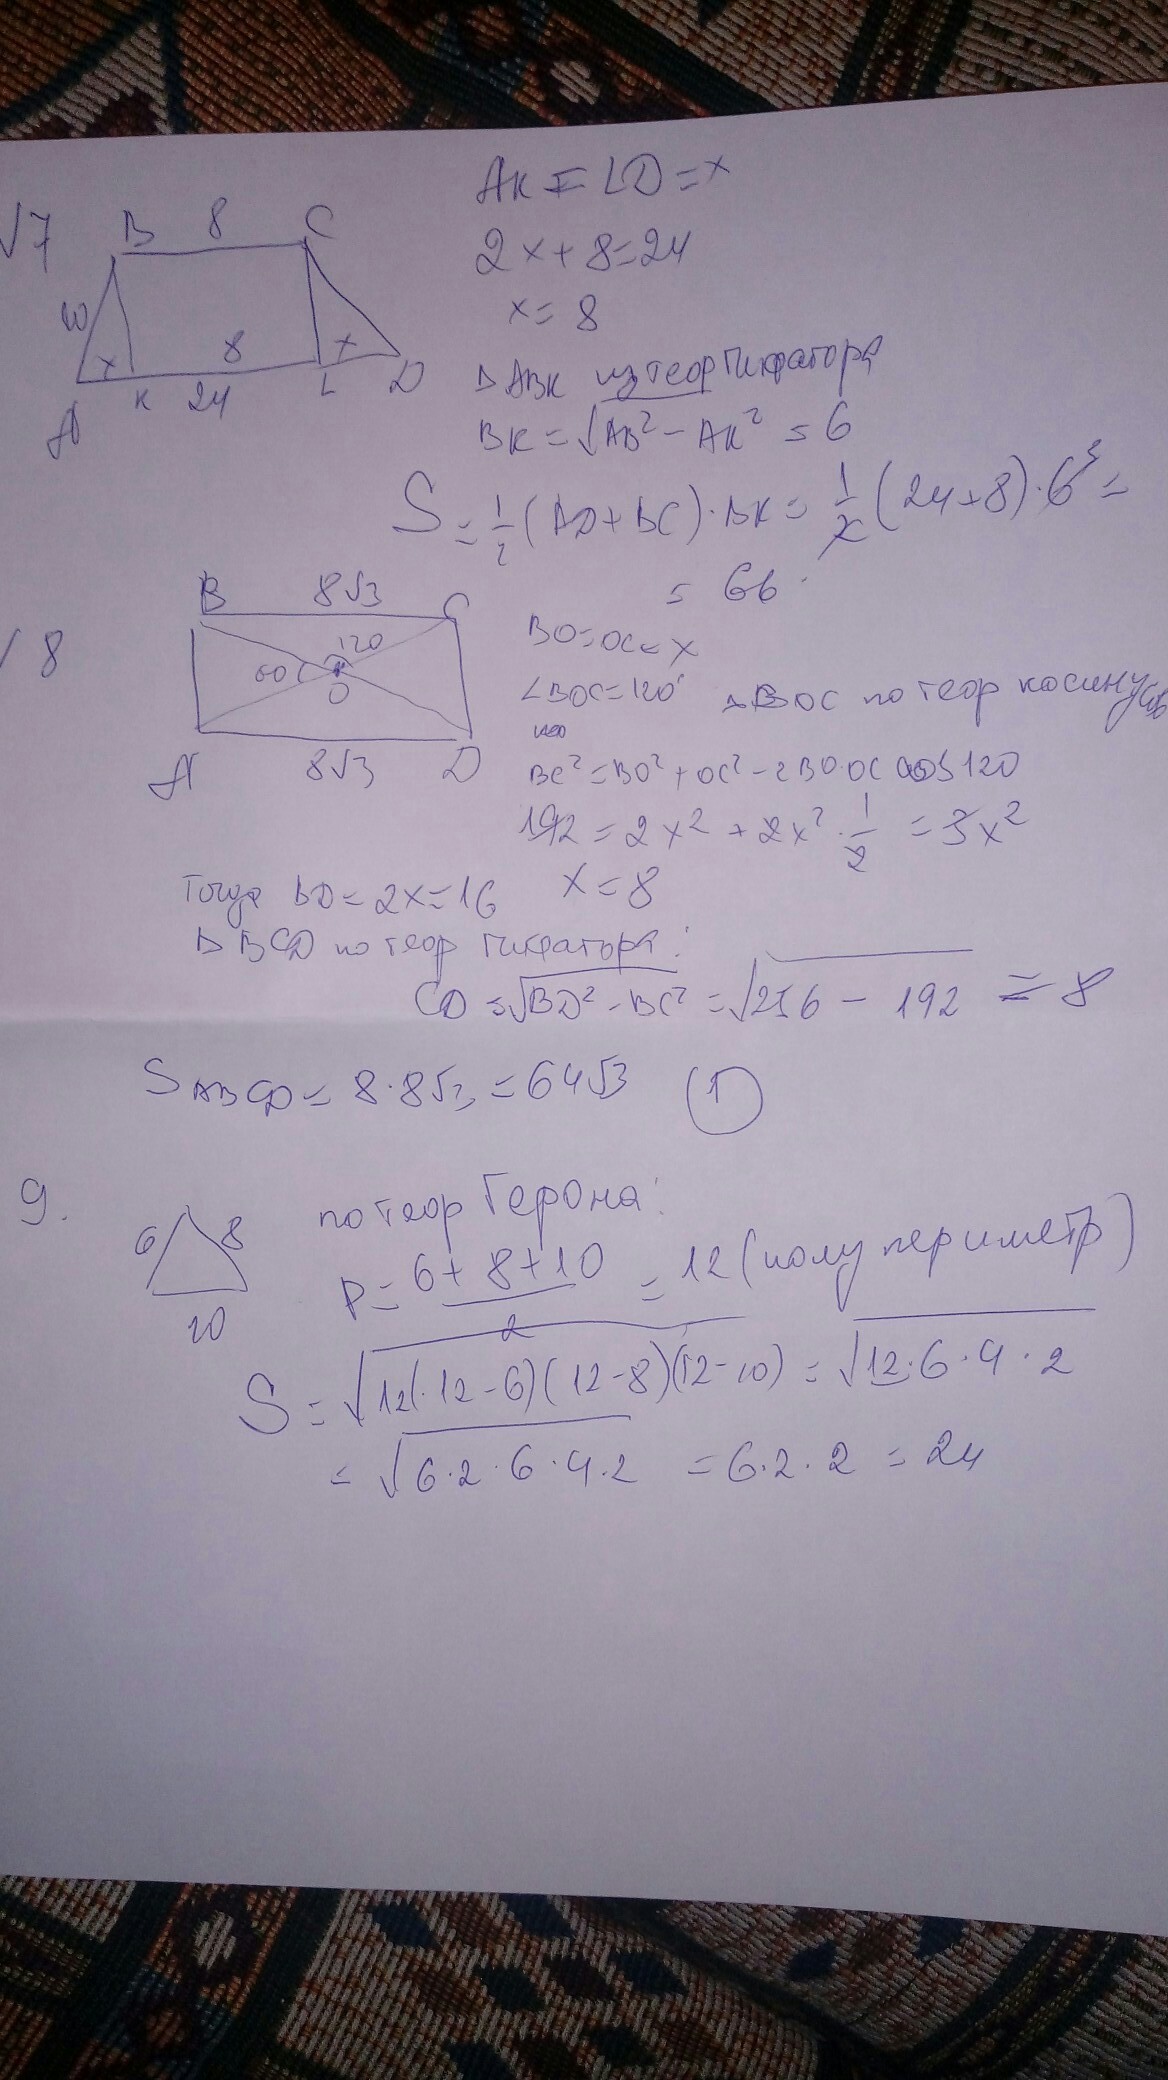 √7
B 8 C
10
x 8 x
A K 24 L D
AK = LD = x
2x + 8 = 24
x = 8
△ ABK из теор Пифагора
BK = √AB² - AK² = 6
S = 1/2 (AD + BC) · BK = 1/2 (24 + 8) · 6 3 =
= 66
√ 8
B 8√3 C
120
60
O
A 8√3 D
BO = OC = x
∠BOC = 120° △ BOC по теор косинусов
BC² = BO² + OC² - 2BO·OC cos 120
192 = 2x² + 2x² · 1/2 = 3x²
Тогда BD = 2x = 16 x = 8
△ BCD по теор Пифагора:
CD = √BD² - BC² = √256 - 192 = 8
S ABCD = 8·8√3 = 64√3 ①
9.
6 8
10
по теор Герона:
P = 6 + 8 + 10 / 2 = 12 (полупериметр)
S = √12(·12-6)(12-8)(12-10) = √12·6·4·2
= √6·2·6·4·2 = 6·2·2 = 24